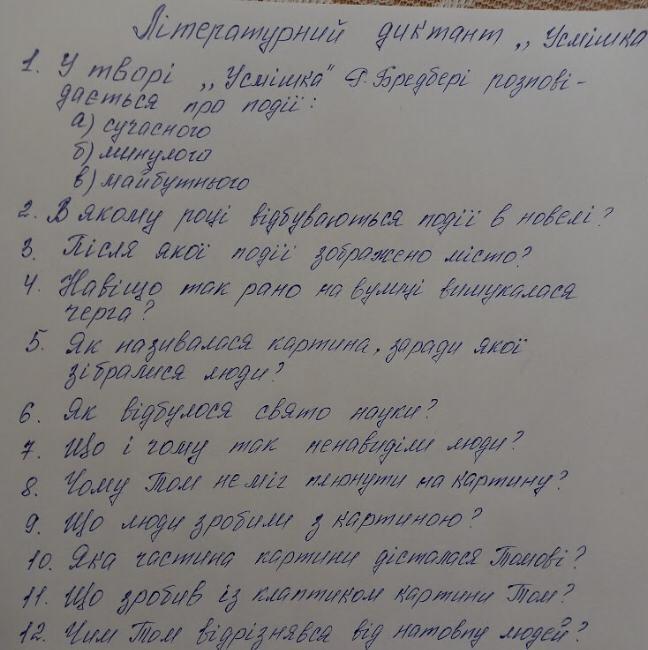 Літературний диктант „Усмішка
1. У творі „Усмішка" Р. Бредбері розпові-
дається про події:
а) сучасного
б) минулого
в) майбутнього
2. В якому році відбуваються події в новелі?
3. Після якої події зображено місто?
4. Навіщо так рано на вулиці вишукалася
черга?
5. Як називалася картина, заради якої
зібралися люди?
6. Як відбулося свято науки?
7. Що і чому так ненавиділи люди?
8. Чому Том не міг плюнути на картину?
9. Що люди зробили з картиною?
10. Яка частина картини дісталася Томові?
11. Що зробив із клаптиком картини Том?
12. Чим Том відрізнявся від натовпу людей?